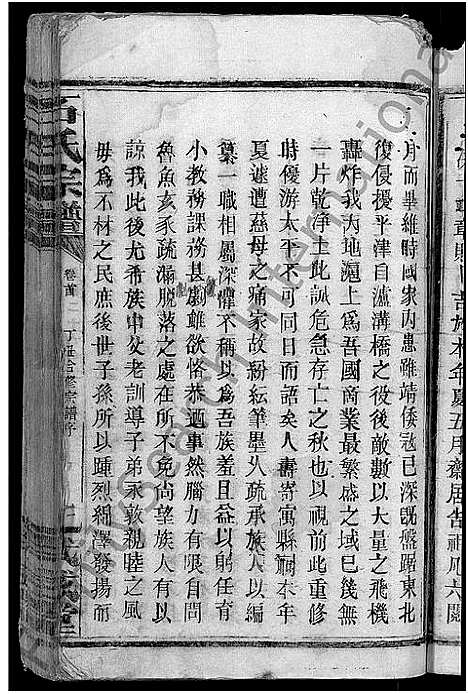 月而畢維時國家內患雖靖倭寇已深旣盤踞東北
復侵擾平津自瀘溝橋之役後敵數以大量之飛機
轟炸我內地滬上爲吾國商業最繁盛之域已幾無
一片乾淨土此誠危急存亡之秋也以視前此重修
時優游太平不可同日而語矣人壽寄寓縣嗣本年
夏遽遭慈母之痛家故紛紜筆墨久疏承族人以編
纂一職相屬深懼不稱以爲吾族羞且益以躬任育
小教務課務甚劇雖欲恪恭迺事然腦力有限自問
魯魚亥豕疏漏脫落之處在所不免尚望族人有以
諒我此後尤希族中父老訓導子弟永敦親睦之風
毋爲不材之民庶後世子孫所以踵烈綿澤發揚而
氏宗譜
卷首
丁丑合修宗譜序